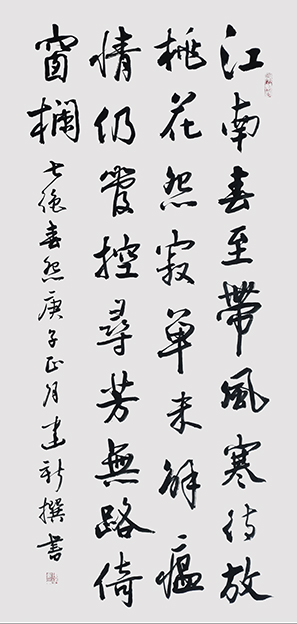 江南春至帶風寒待放
桃花怨寂單未解瘟
情仍管控尋芳無路倚
窗欄
七絕春怨庚子正月建新撰書